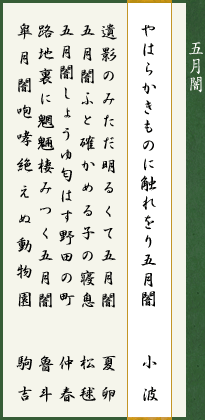 五月闇
やはらかきものに触れをり五月闇 小波
遺影のみただ明るくて五月闇 夏卯
五月闇ふと確かめる子の寝息 松毬
五月闇しょうゆ匂はす野田の町 仲春
路地裏に魍魎棲みつく五月闇 魯斗
皐月闇咆哮絶えぬ動物園 駒吉